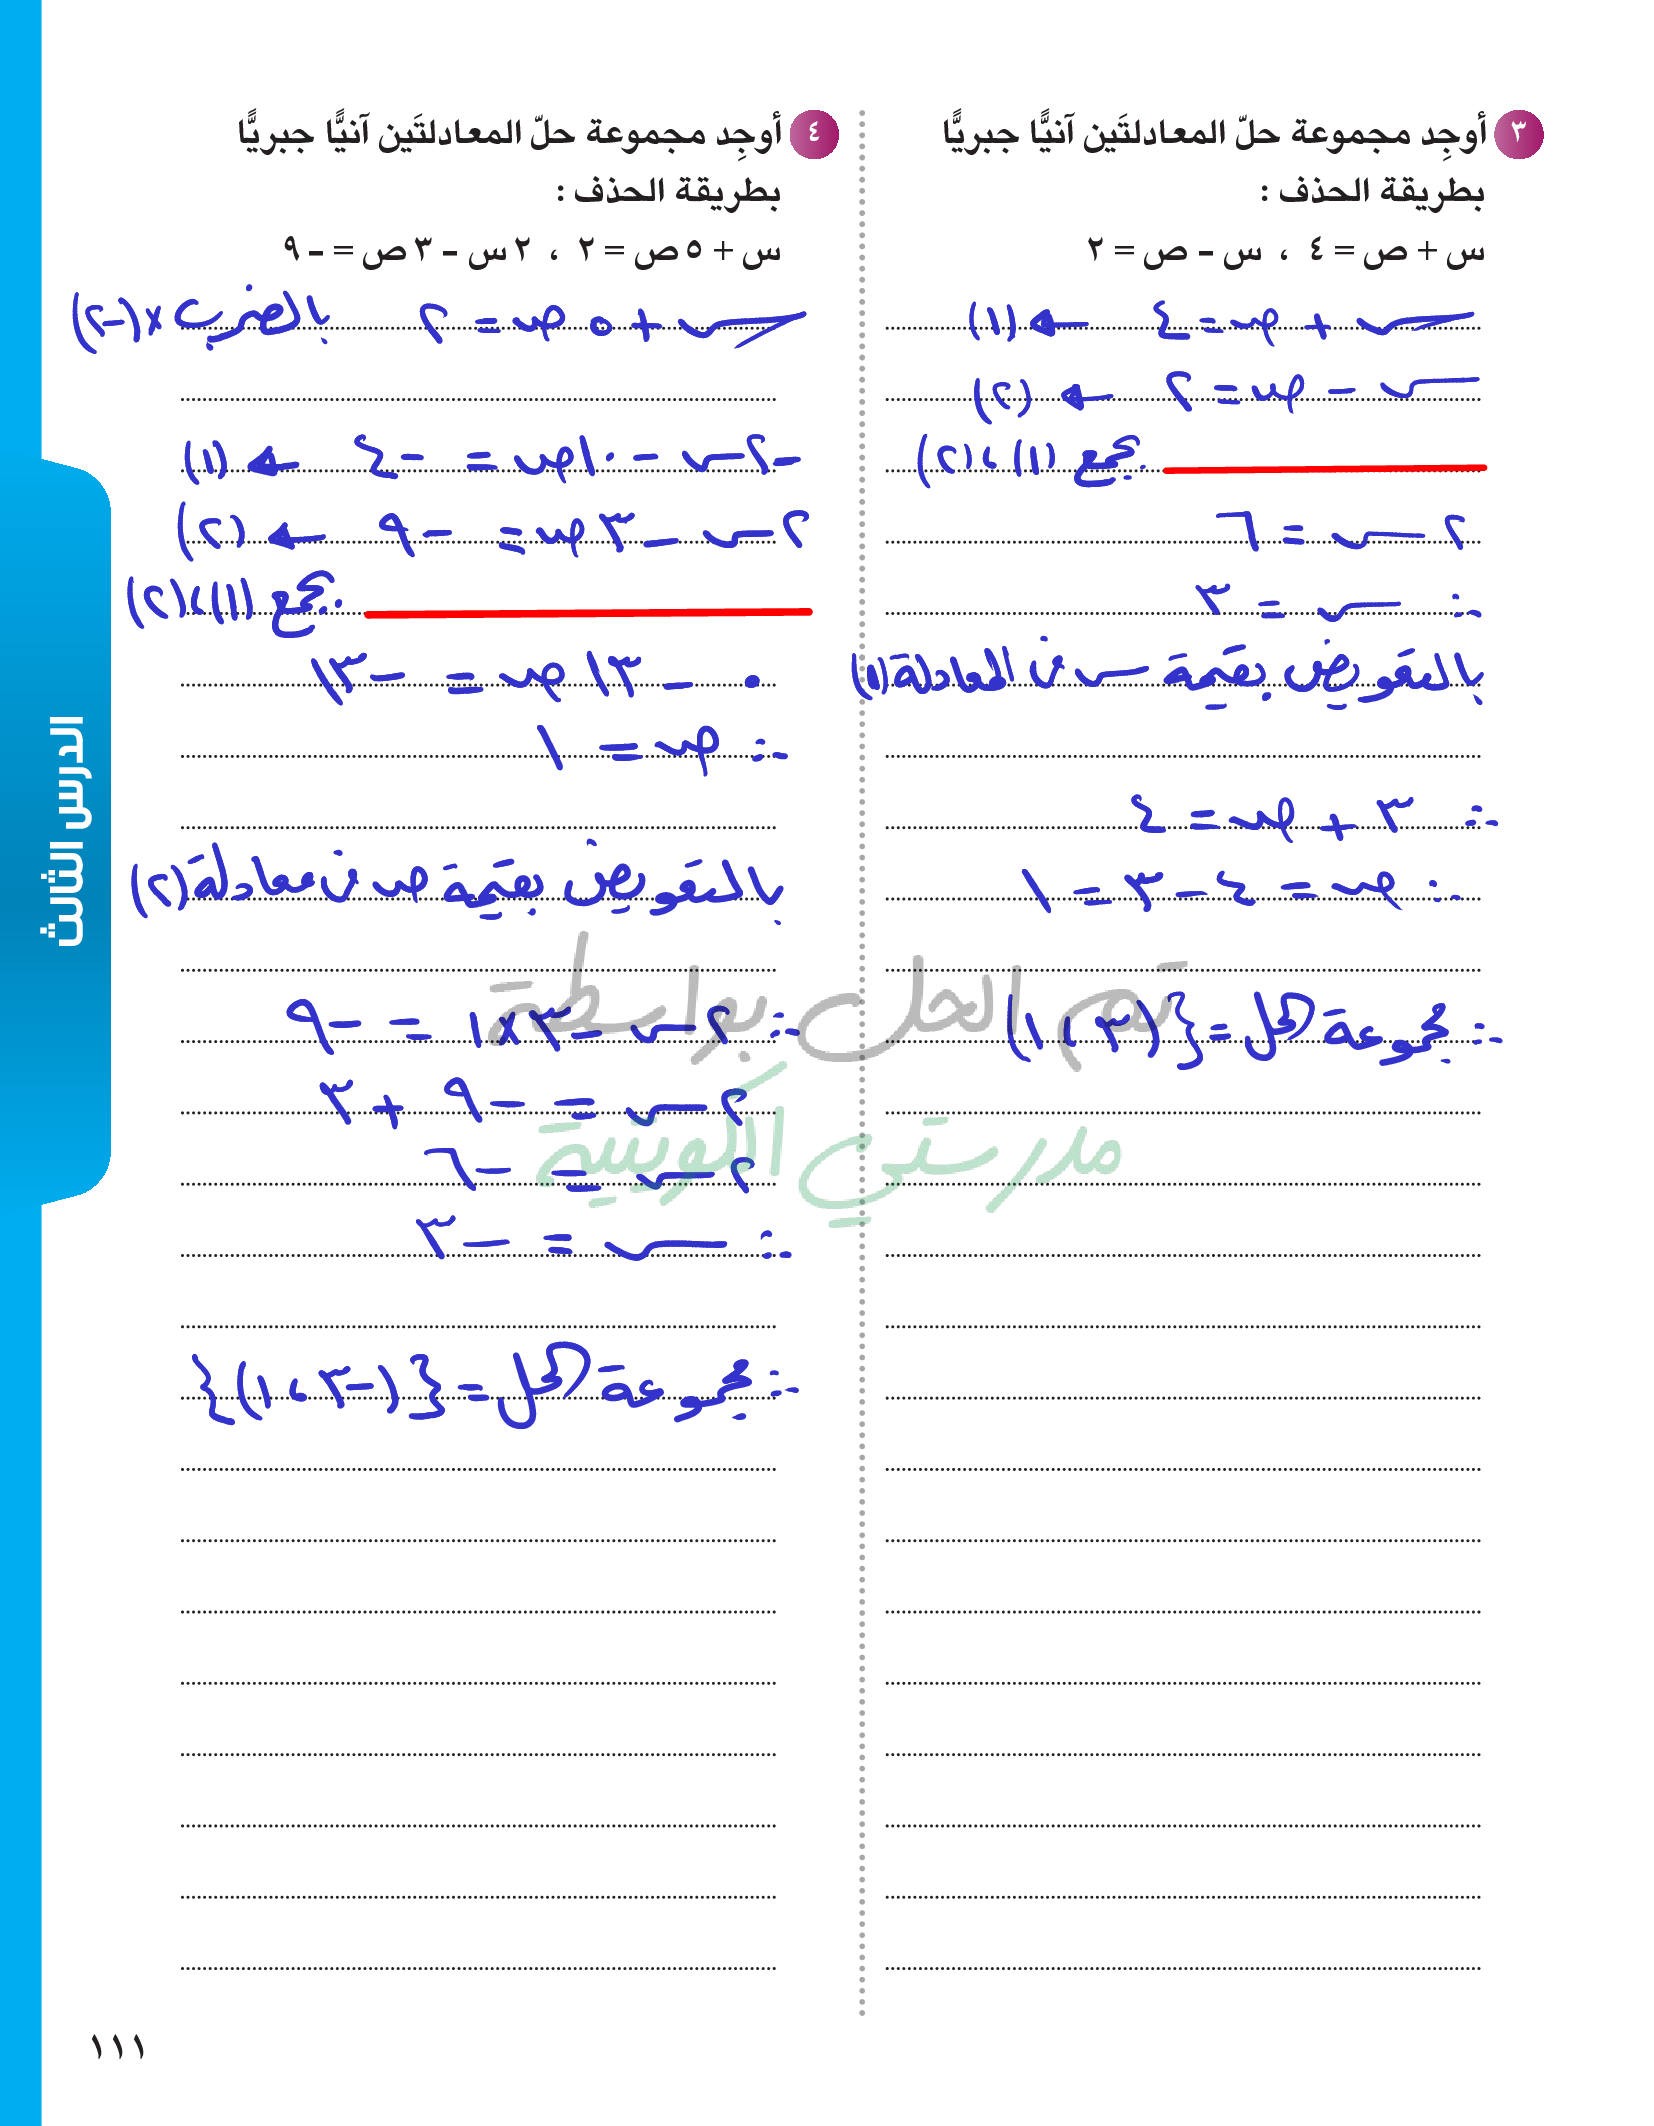 ٣ أوجِد مجموعة حلّ المعادلتَين آنيًّا جبريًّا
بطريقة الحذف :
س + ص = ٤ ، س - ص = ٢
س + ص = ٤ ← (١)
س - ص = ٢ ← (٢)
بجمع (١)،(٢)
٢ س = ٦
∴ س = ٣
بالتعويض بقيمة س في المعادلة (١)
∴ ٣ + ص = ٤
∴ ص = ٤ - ٣ = ١
∴ مجموعة الحل = {(٣ ، ١)
٤ أوجِد مجموعة حلّ المعادلتَين آنيًّا جبريًّا
بطريقة الحذف :
س + ٥ ص = ٢ ، ٢ س - ٣ ص = - ٩
س + ٥ ص = ٢ بالضرب × (-٢)
-٢ س - ١٠ ص = -٤ ← (١)
٢ س - ٣ ص = -٩ ← (٢)
بجمع (١)،(٢)
٠ - ١٣ ص = -١٣
∴ ص = ١
بالتعويض بقيمة ص في معادلة (٢)
∴ ٢ س - ٣ × ١ = -٩
٢ س = -٩ + ٣
٢ س = -٦
∴ س = -٣
∴ مجموعة الحل = {(-٣ ، ١)}
تم الحل بواسطة
مدرستي الكويتية
الدرس الثالث
١١١